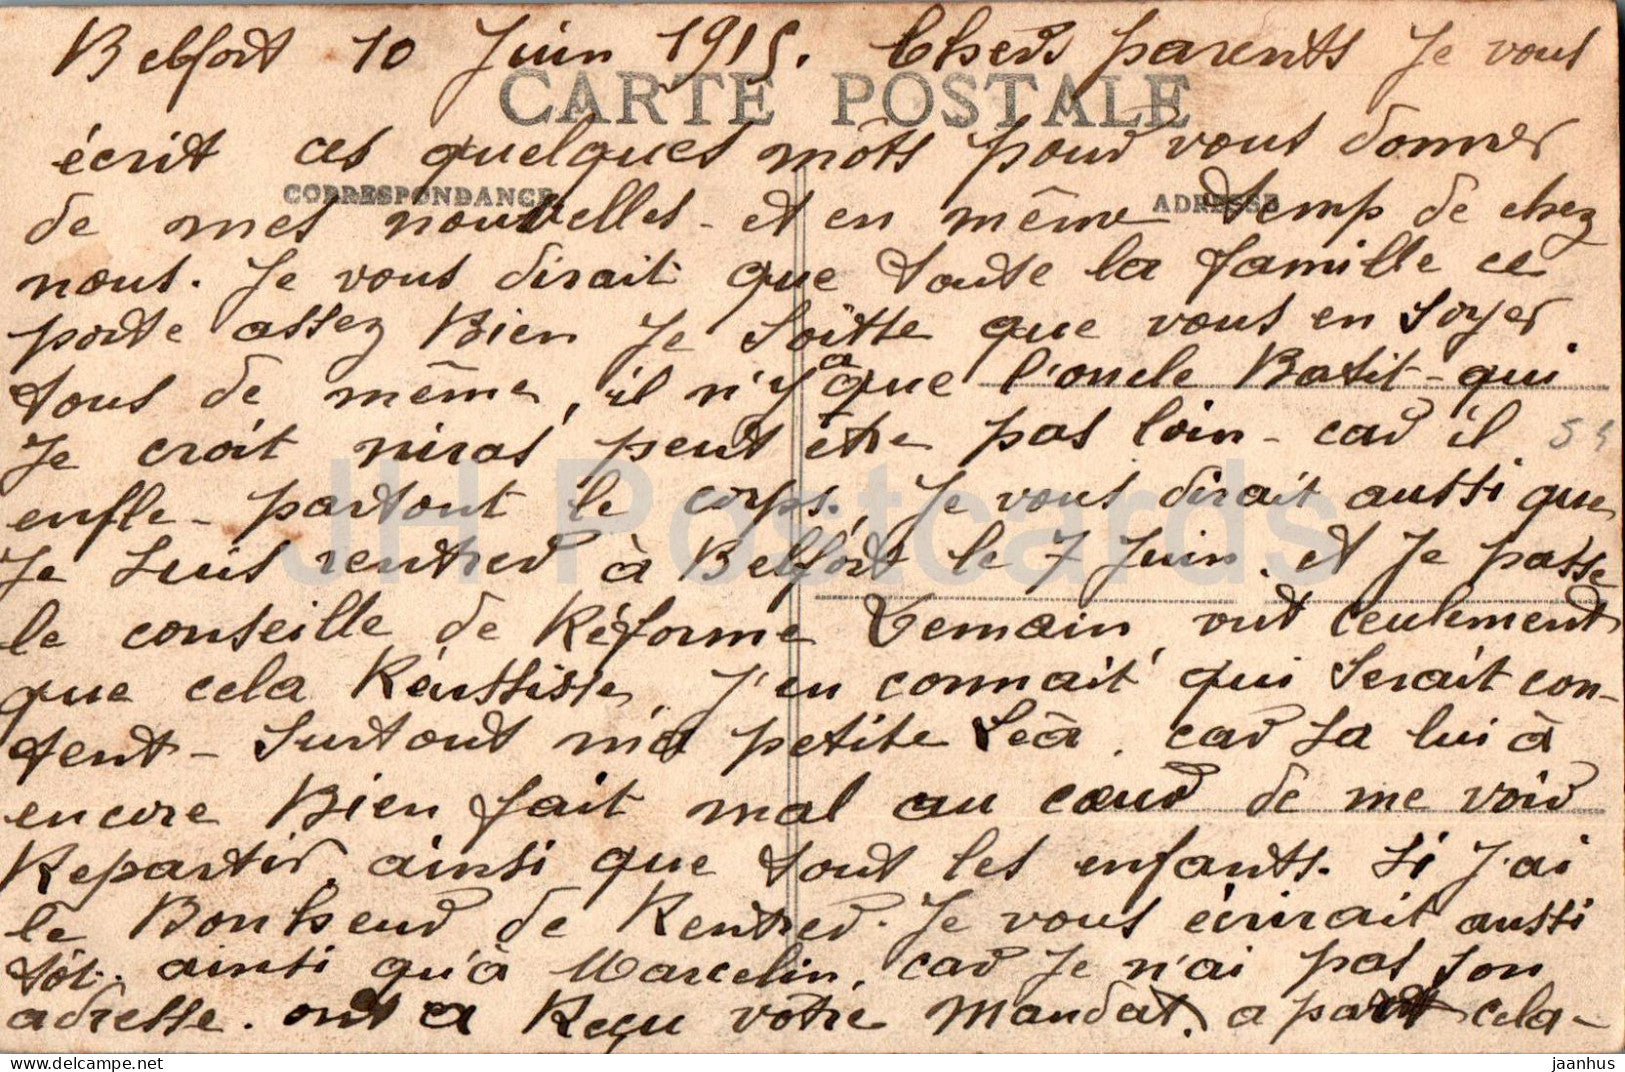 Belfort 10 Juin 1915. Chers parents Je vous
CARTE POSTALE
écrit ces quelques môts pour vous donner
CORRESPONDANCE
ADRESSE
de mes nouvelles - et en même temp de chez
nous. Je vous dirait que toute la famille ce
porte assez Bien Je Soitte que vous en Soyer
tous de même, il n'y a que l'oncle Batit - qui
Je croit niras peut être pas loin - car il
enfle - partout le corps. Je vous dirait aussi que
Je Suis rentrer à Belfort le 7 Juin. et Je passe
le conseille de Réforme Demain, vut ceulement
que cela Réussisse, J'en connait qui Serait con-
tent - Surtout ma petite Léà. car Sa lui à
encore Bien fait mal au cœur de me voir
Repartir, ainsi que tout les enfants. Si J'ai
le Bonheur de Rentrer. Je vous écrirait aussi
tôt. ainsi qu'à Marcelin, car Je n'ai pas son
adresse. ont a Reçu votre Mandat, a part cela -
JH Postcards
jaanhus